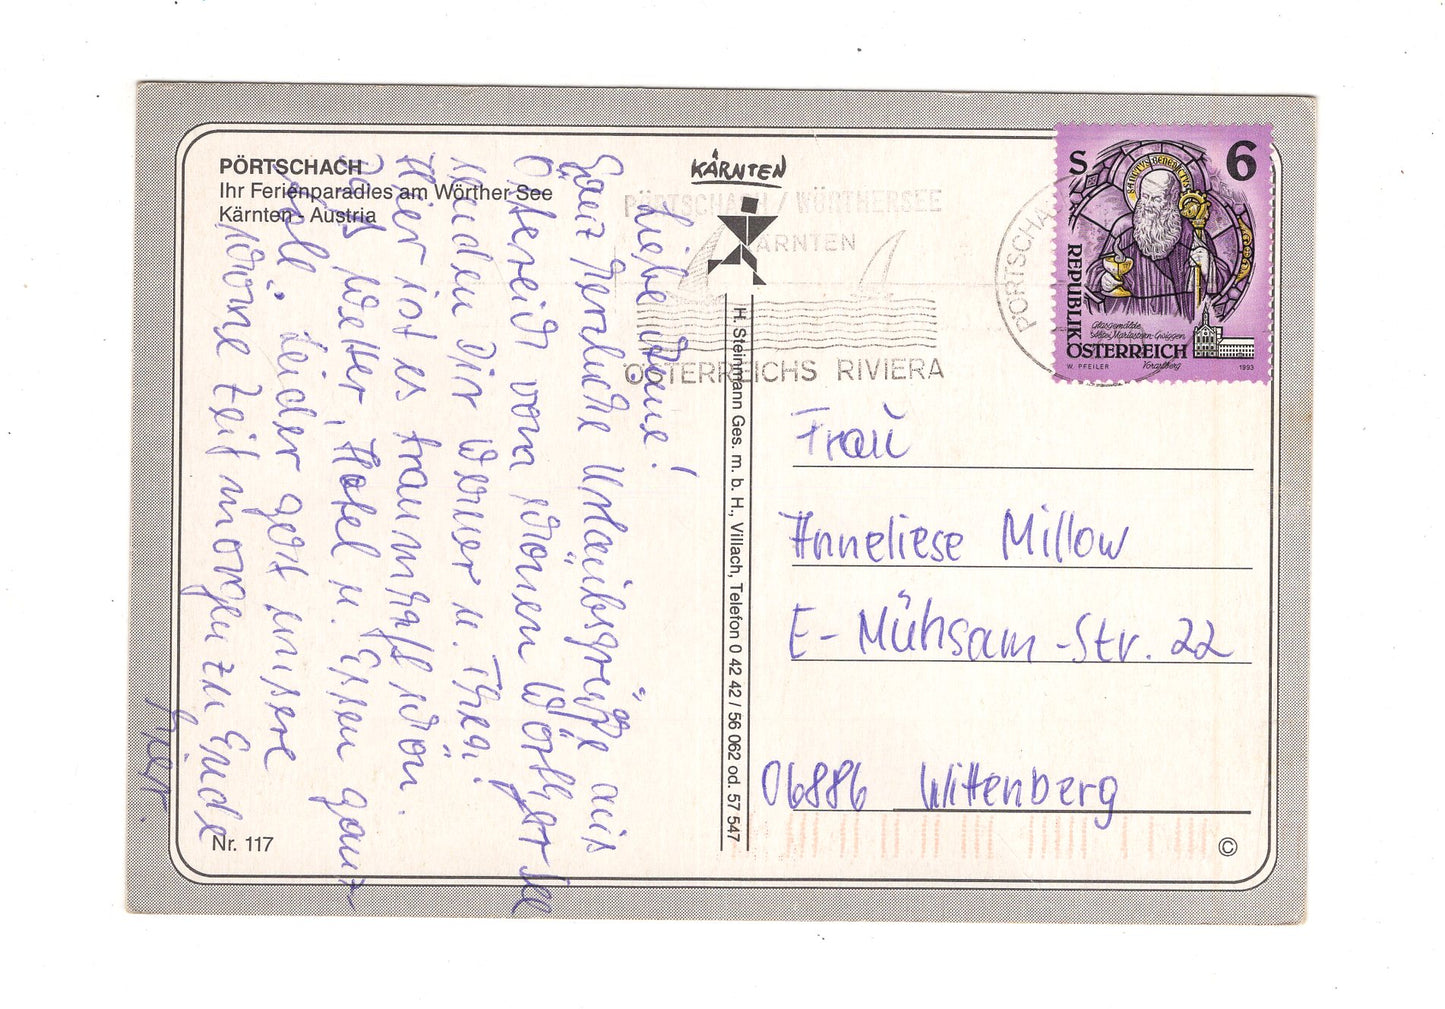 PÖRTSCHACH
Ihr Ferienparadies am Wörther See
Kärnten - Austria
KÄRNTEN
PÖRTSCHACH / WÖRTHERSEE
KÄRNTEN
ÖSTERREICHS RIVIERA
PÖRTSCHA
S 6
SANCTUS BENEDICTUS
REPUBLIK
ÖSTERREICH
Glasgemälde
Abtei Mariastern-Gwiggen
Vorarlberg
W. PFEILER
1993
Liebe
Ganz herzliche Urlaubsgrüße aus
Österreich vom schönen Wörther See
senden Dir Werner u. Thesi!
Hier ist es traumhaft schön.
Das Wetter, Hotel u. Essen ganz
toll. Leider geht unsere
schöne Zeit morgen zu Ende
hier.
H. Steinmann Ges. m. b. H., Villach, Telefon 0 42 42 / 56 062 od. 57 547
Frau
Anneliese Millow
E-Mühsam-Str. 22
06886 Wittenberg
Nr. 117
©